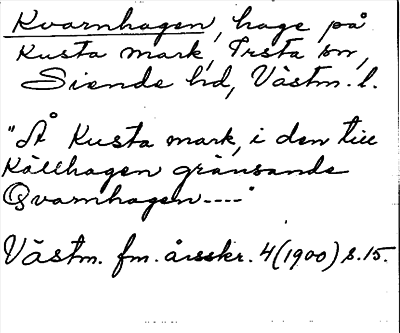 Kvarnhagen, hage på
Kusta mark, Irsta sn,
Siende hd, Västm. l.
"Å Kusta mark, i den till
Källhagen gränsande
Qvarnhagen----"
Västm. fm. årsskr. 4(1900) s.15.